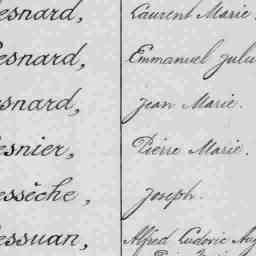 esnard, Laurent Marie.
esnard, Emmanuel Jule
esnard, Jean Marie.
esnier, Pierre Marie.
essèche, Joseph.
essuan, Alfred Ludovic Aug